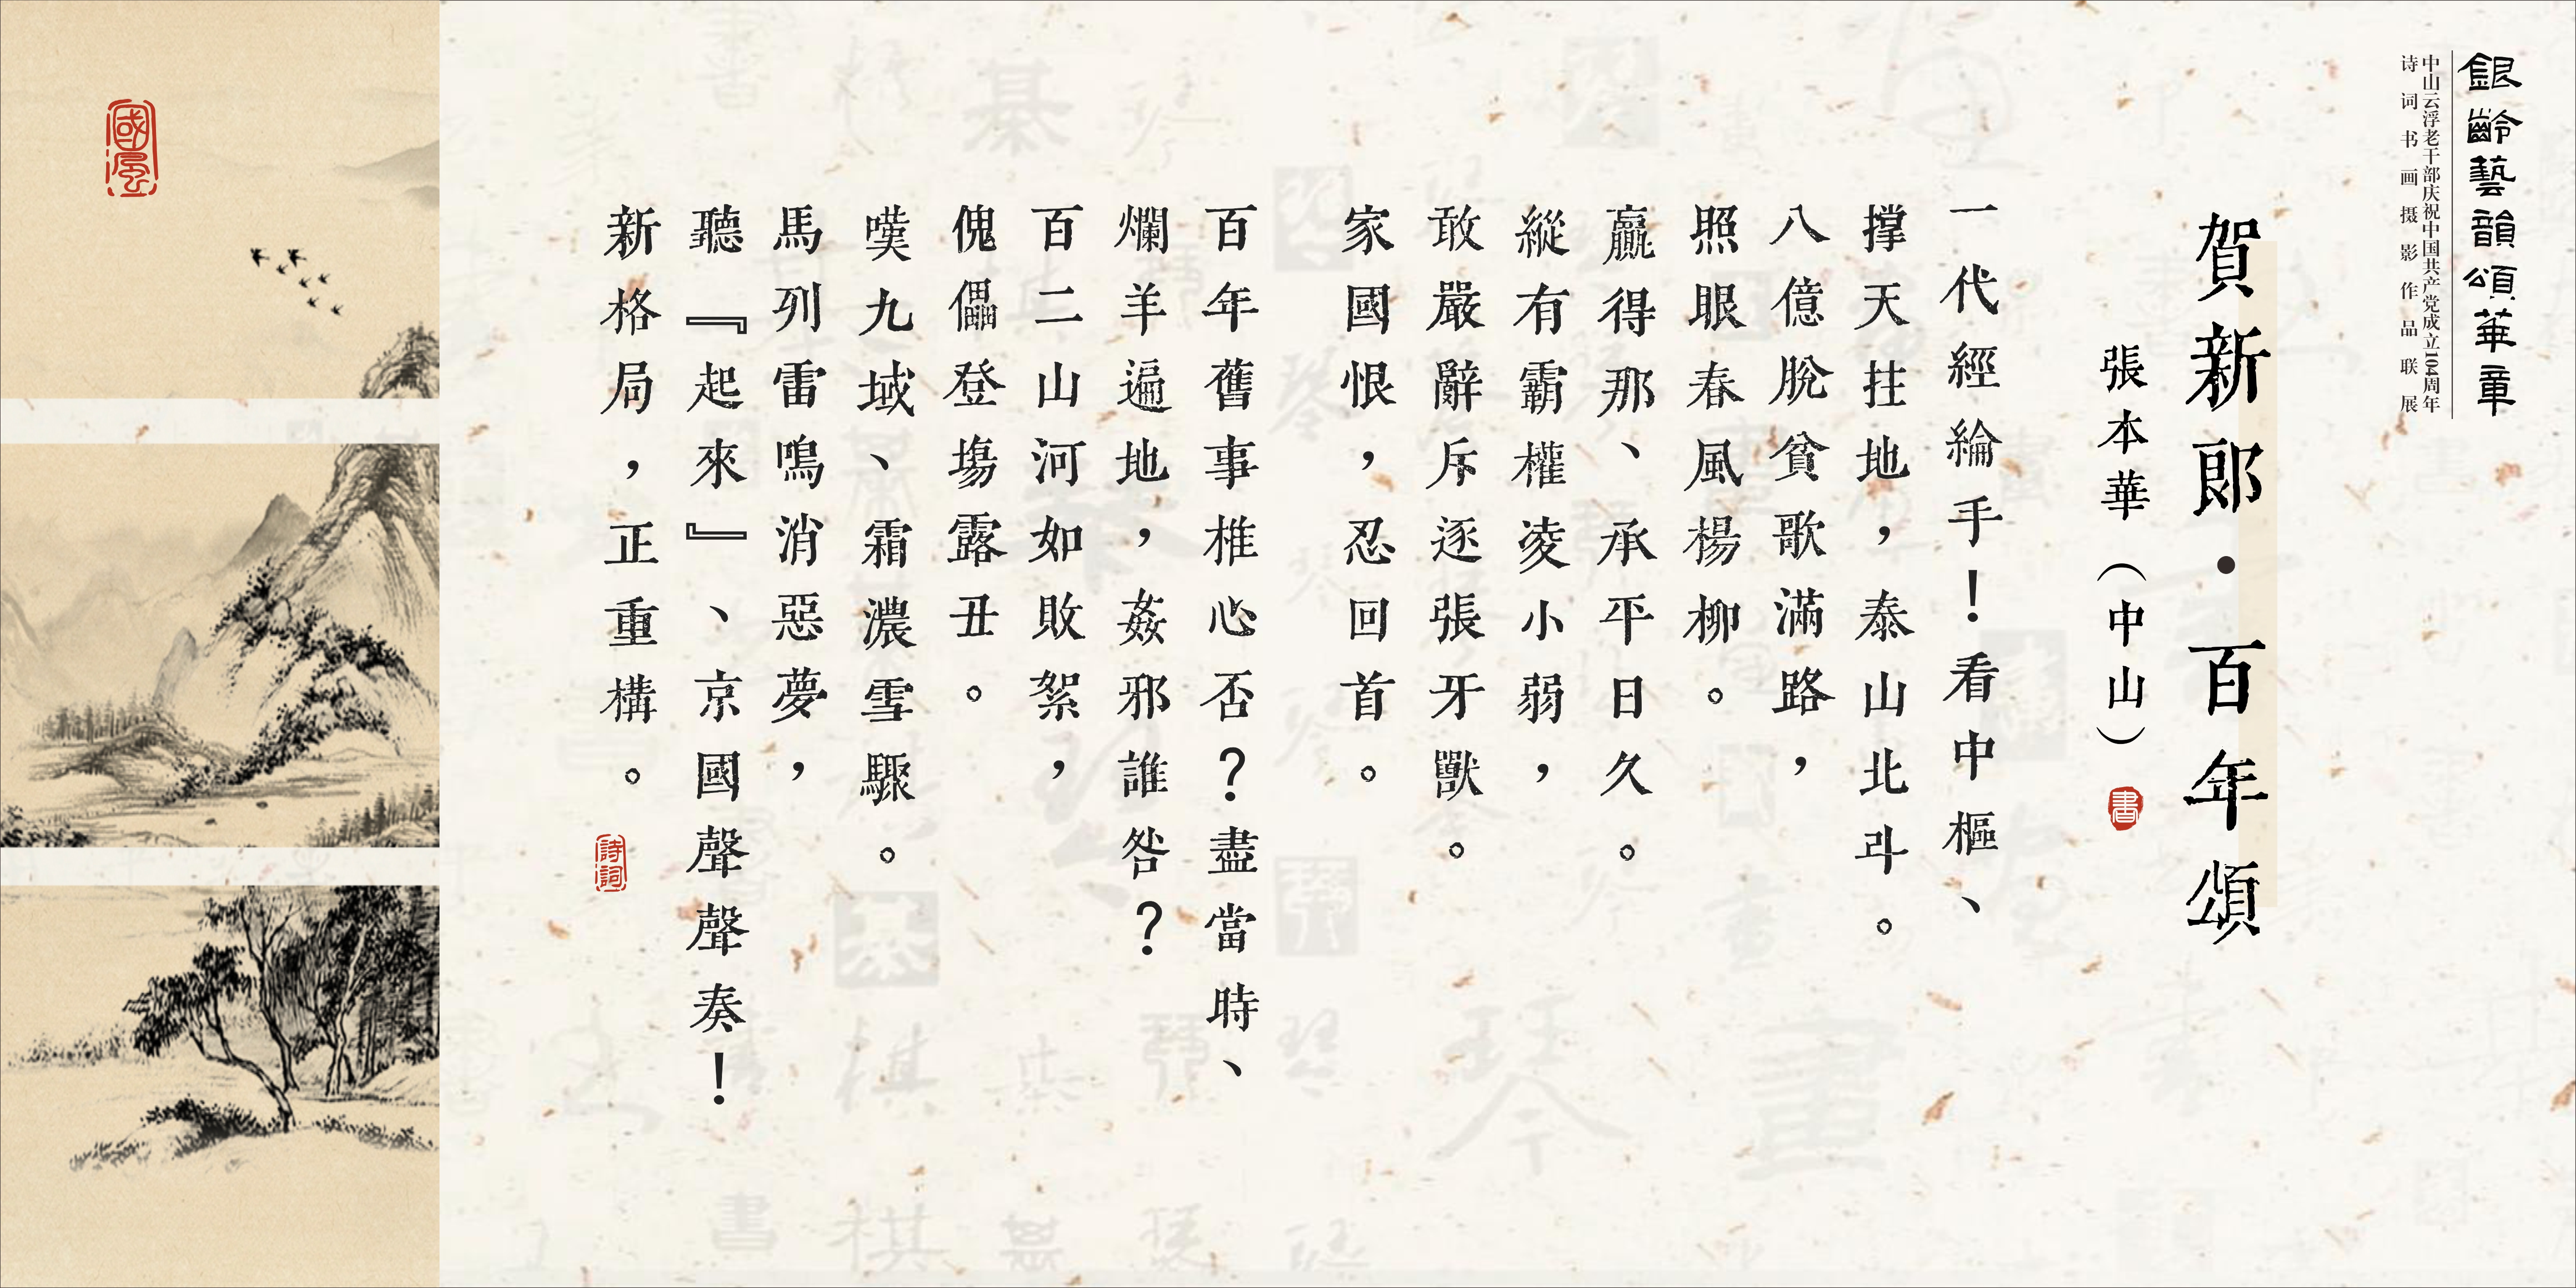 銀齡藝韻頌華章
中山云浮老干部庆祝中国共产党成立104周年
诗词书画摄影作品联展
賀新郎·百年頌
張本華（中山）
書
一代經綸手！看中樞、
撑天拄地，泰山北斗。
八億脫貧歌滿路，
照眼春風楊柳。
贏得那、承平日久。
縱有霸權凌小弱，
敢嚴辭斥逐張牙獸。
家國恨，忍回首。
百年舊事椎心否？盡當時、
爛羊遍地，姦邪誰咎？
百二山河如敗絮，
傀儡登場露丑。
嘆九域、霜濃雪驟。
馬列雷鳴消惡夢，
聽『起來』、京國聲聲奏！
新格局，正重構。
詩詞
國風